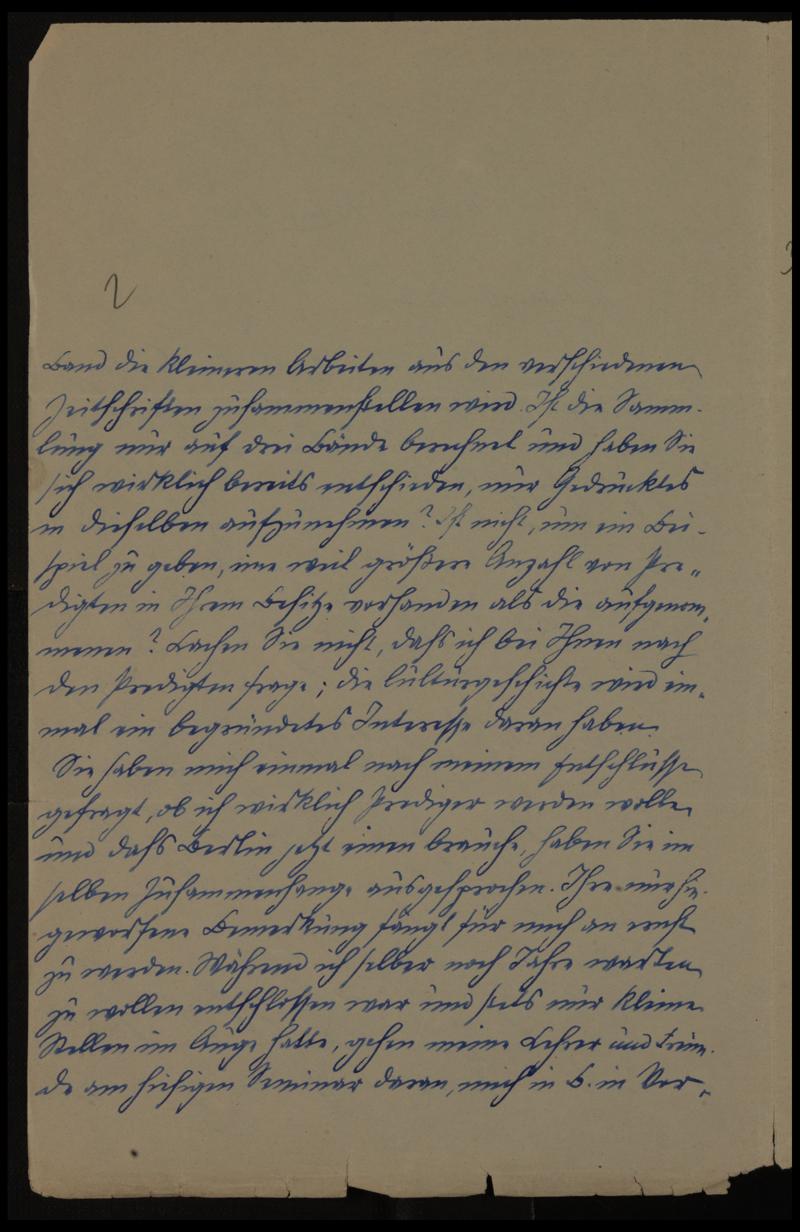 2
Band die kleineren Arbeiten aus den verschiedenen
Zeitschriften zusammenstellen wird. Ist die Samm-
lung nur auf drei Bände berechnet und haben Sie
sich wirklich bereits entschieden, nur Gedrucktes
in dieselben aufzunehmen? Ist nicht, um ein Bei-
spiel zu geben, eine weit größere Anzahl von Pre-
digten in Ihrem Besitze vorhanden als die aufgenom-
menen? Lachen Sie nicht, daß ich bei Ihnen nach
den Predigten frage; die Culturgeschichte wird ein-
mal ein begründetes Interesse daran haben.
Sie haben mich einmal nach meinem Entschlusse
gefragt, ob ich wirklich Prediger werden wolle
und daß Berlin jetzt einen brauche, haben Sie im
selben Zusammenhange ausgesprochen. Ihre nur hin-
geworfene Bemerkung fängt für mich an ernst
zu werden. Während ich selber noch Jahre warten
zu wollen entschlossen war und stets nur kleine
Stellen im Auge hatte, gehen meine Lehrer und Freun-
de am hiesigen Seminar daran, mich in B. in Vor-